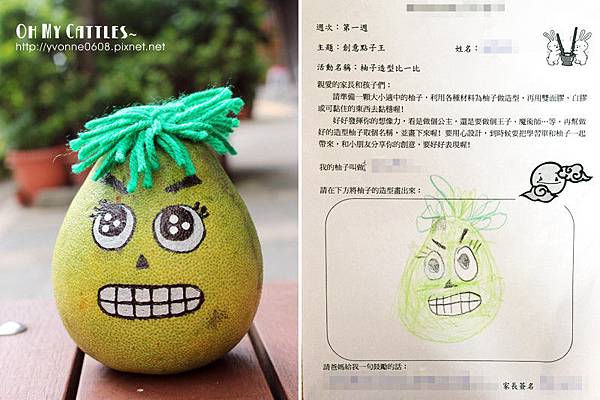 OH MY CATTLES~
http://yvonne0608.pixnet.net
週次：第一週
主題：創意點子王
姓名：
活動名稱：柚子造型比一比
親愛的家長和孩子們：
請準備一顆大小適中的柚子，利用各種材料為柚子做造型，再用雙面膠、白膠
或可黏住的東西去黏穩喔！
好好發揮你的想像力，看是做個公主、還是要做個王子、魔術師…等，再幫做
好的造型柚子取個名稱，並畫下來喔！要用心設計，到時候要把學習單和柚子一起
帶來，和小朋友分享你的創意，要好好表現喔！
我的柚子叫做
請在下方將柚子的造型畫出來：
請爸媽給我一句鼓勵的話：
家長簽名